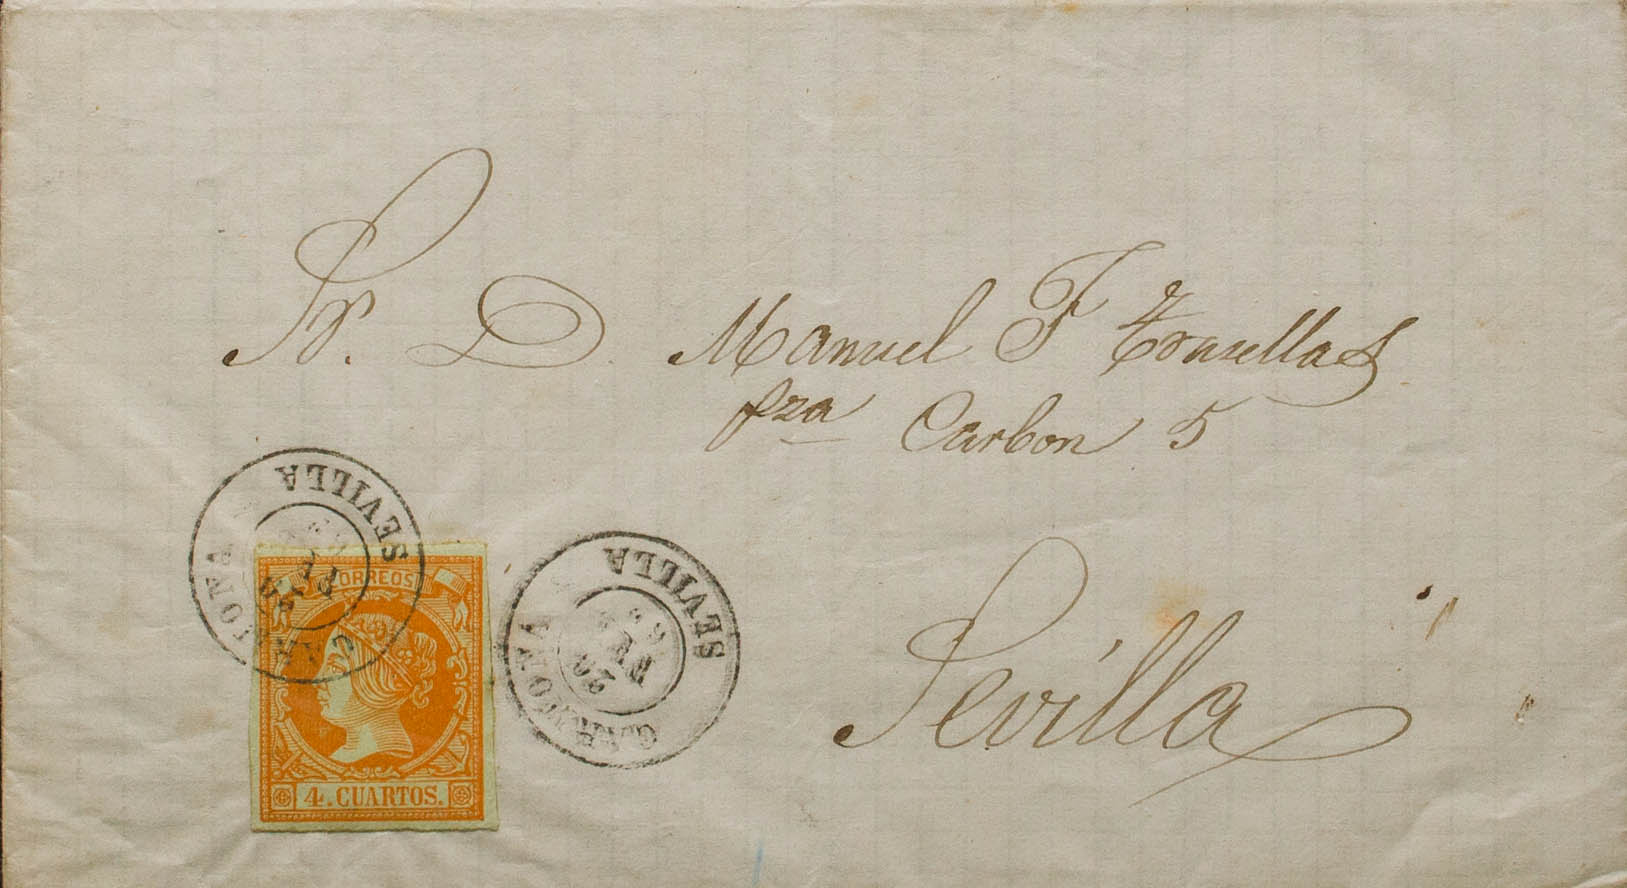 Sr. D. Manuel F Trusellas
pza Carbon 5
Sevilla
CARMONA
SEVILLA
CORREOS
4. CUARTOS.
CARMONA
SEVILLA